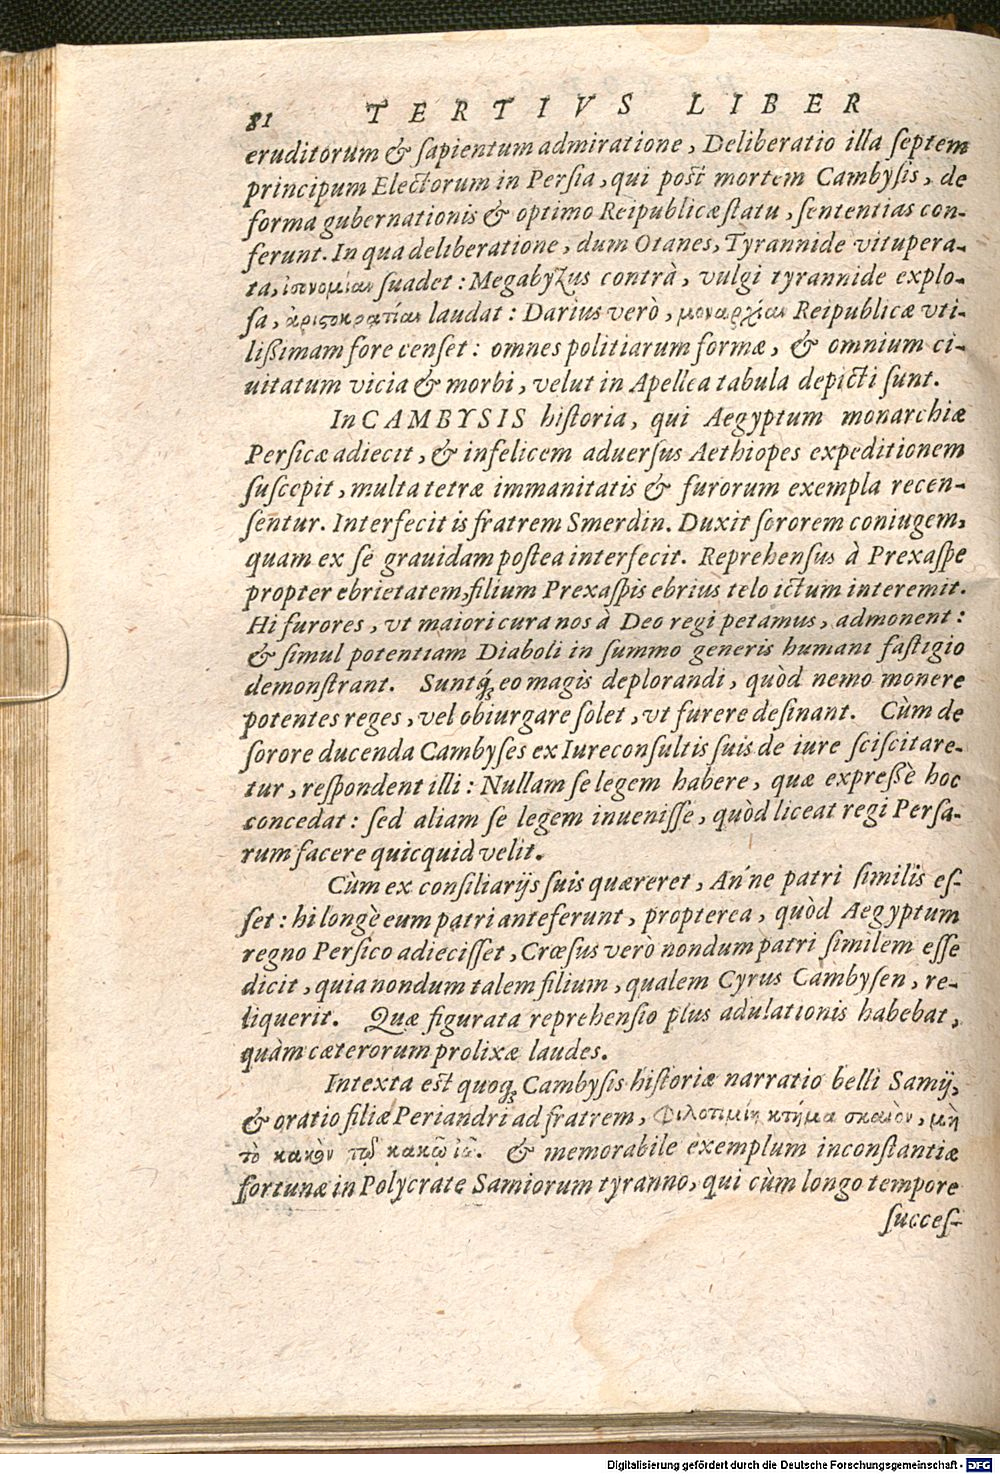 81 TERTIVS LIBER
eruditorum & ſapientum admiratione, Deliberatio illa ſeptem
principum Electorum in Perſia, qui poſt mortem Cambyſis, de
forma gubernationis & optimo Reipublicæ ſtatu, ſententias con-
ferunt. In qua deliberatione, dum Otanes, Tyrannide vitupera-
ta, ἰσονομίαν ſuadet: Megabyzus contrà, vulgi tyrannide explo-
ſa, ἀριστοκρατίαν laudat: Darius verò, μοναρχίαν Reipublicæ vti-
lißimam fore cenſet: omnes politiarum formæ, & omnium ci-
uitatum vicia & morbi, velut in Apellea tabula depicti ſunt.
In CAMBYSIS hiſtoria, qui Aegyptum monarchiæ
Perſicæ adiecit, & infelicem aduerſus Aethiopes expeditionem
ſuſcepit, multa tetræ immanitatis & furorum exempla recen-
ſentur. Interfecit is fratrem Smerdin. Duxit ſororem coniugem,
quam ex ſe grauidam poſtea interfecit. Reprehenſus à Prexaſpe
propter ebrietatem, filium Prexaſpis ebrius telo ictum interemit.
Hi furores, vt maiori cura nos à Deo regi petamus, admonent:
& ſimul potentiam Diaboli in ſummo generis humani faſtigio
demonſtrant. Suntq́ꝫ eo magis deplorandi, quòd nemo monere
potentes reges, vel obiurgare ſolet, vt furere deſinant. Cùm de
ſorore ducenda Cambyſes ex Iureconſultis ſuis de iure ſciſcitare-
tur, reſpondent illi: Nullam ſe legem habere, quæ expreſſè hoc
concedat: ſed aliam ſe legem inueniſſe, quòd liceat regi Perſa-
rum facere quicquid velit.
Cùm ex conſiliarijs ſuis quæreret, An'ne patri ſimilis eſ-
ſet: hi longè eum patri anteferunt, propterea, quòd Aegyptum
regno Perſico adieciſſet, Crœſus verò nondum patri ſimilem eſſe
dicit, quia nondum talem filium, qualem Cyrus Cambyſen, re-
liquerit. Quæ figurata reprehenſio plus adulationis habebat,
quàm cæterorum prolixæ laudes.
Intexta eſt quoqꝫ Cambyſis hiſtoriæ narratio belli Samij,
& oratio filiæ Periandri ad fratrem, Φιλοτιμίη κτῆμα σκαιὸν, μὴ
τὸ κακὸν τῷ κακῷ ἰῶ. & memorabile exemplum inconſtantiæ
fortunæ in Polycrate Samiorum tyranno, qui cùm longo tempore
ſucceſ-
Digitalisierung gefördert durch die Deutsche Forschungsgemeinschaft - DFG